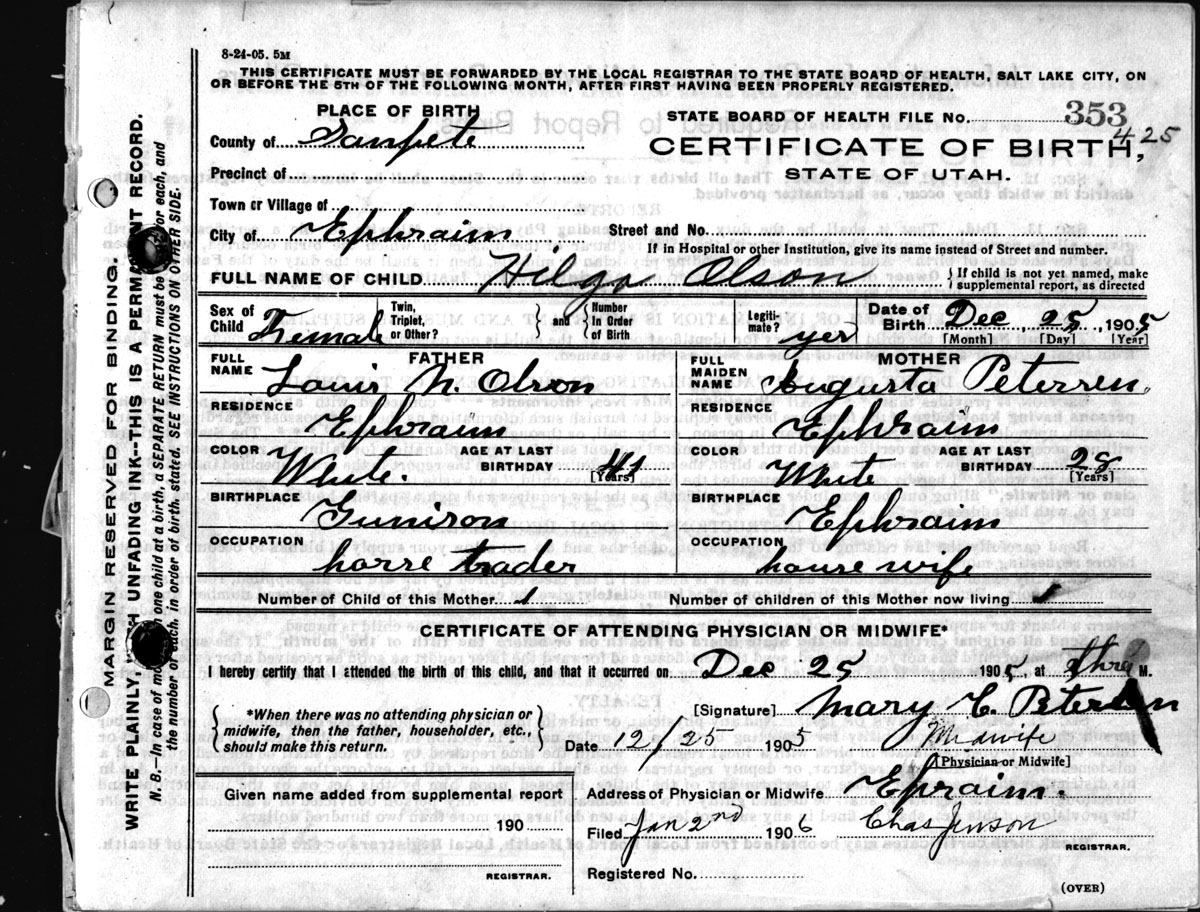 8-24-05. 5M
THIS CERTIFICATE MUST BE FORWARDED BY THE LOCAL REGISTRAR TO THE STATE BOARD OF HEALTH, SALT LAKE CITY, ON
OR BEFORE THE 5TH OF THE FOLLOWING MONTH, AFTER FIRST HAVING BEEN PROPERLY REGISTERED.
PLACE OF BIRTH
County of Sanpete
Precinct of
Town or Village of
City of Ephraim
STATE BOARD OF HEALTH FILE No. 353
425
CERTIFICATE OF BIRTH,
STATE OF UTAH.
Street and No.
If in Hospital or other Institution, give its name instead of Street and number.
FULL NAME OF CHILD Hilga Olson
If child is not yet named, make
supplemental report, as directed
Sex of Child Female
Twin, Triplet, or Other?
and
Number In Order of Birth
Legitimate? yes
Date of Birth Dec 25, 1905
[Month] [Day] [Year]
FATHER
FULL NAME Louis N. Olson
RESIDENCE Ephraim
COLOR White.
AGE AT LAST BIRTHDAY 41
[Years]
BIRTHPLACE Gunison
OCCUPATION horse trader
MOTHER
FULL MAIDEN NAME Augusta Petersen.
RESIDENCE Ephraim
COLOR White
AGE AT LAST BIRTHDAY 28
[Years]
BIRTHPLACE Ephraim
OCCUPATION house wife
Number of Child of this Mother 1
Number of children of this Mother now living 1
CERTIFICATE OF ATTENDING PHYSICIAN OR MIDWIFE*
I hereby certify that I attended the birth of this child, and that it occurred on Dec 25 1905, at M.
*When there was no attending physician or
midwife, then the father, householder, etc.,
should make this return.
[Signature] Mary C. Petersen
Date 12/25 1905 Midwife
[Physician or Midwife]
Given name added from supplemental report
190
REGISTRAR.
Address of Physician or Midwife Ephraim.
Filed Jan 2nd 1906 Chas Jenson
REGISTRAR.
Registered No.
(OVER)
MARGIN RESERVED FOR BINDING.
WRITE PLAINLY, WITH UNFADING INK--THIS IS A PERMANENT RECORD.
N. B.--In case of more than one child at a birth, a SEPARATE RETURN must be made for each, and
the number of each, in order of birth, stated. SEE INSTRUCTIONS ON OTHER SIDE.